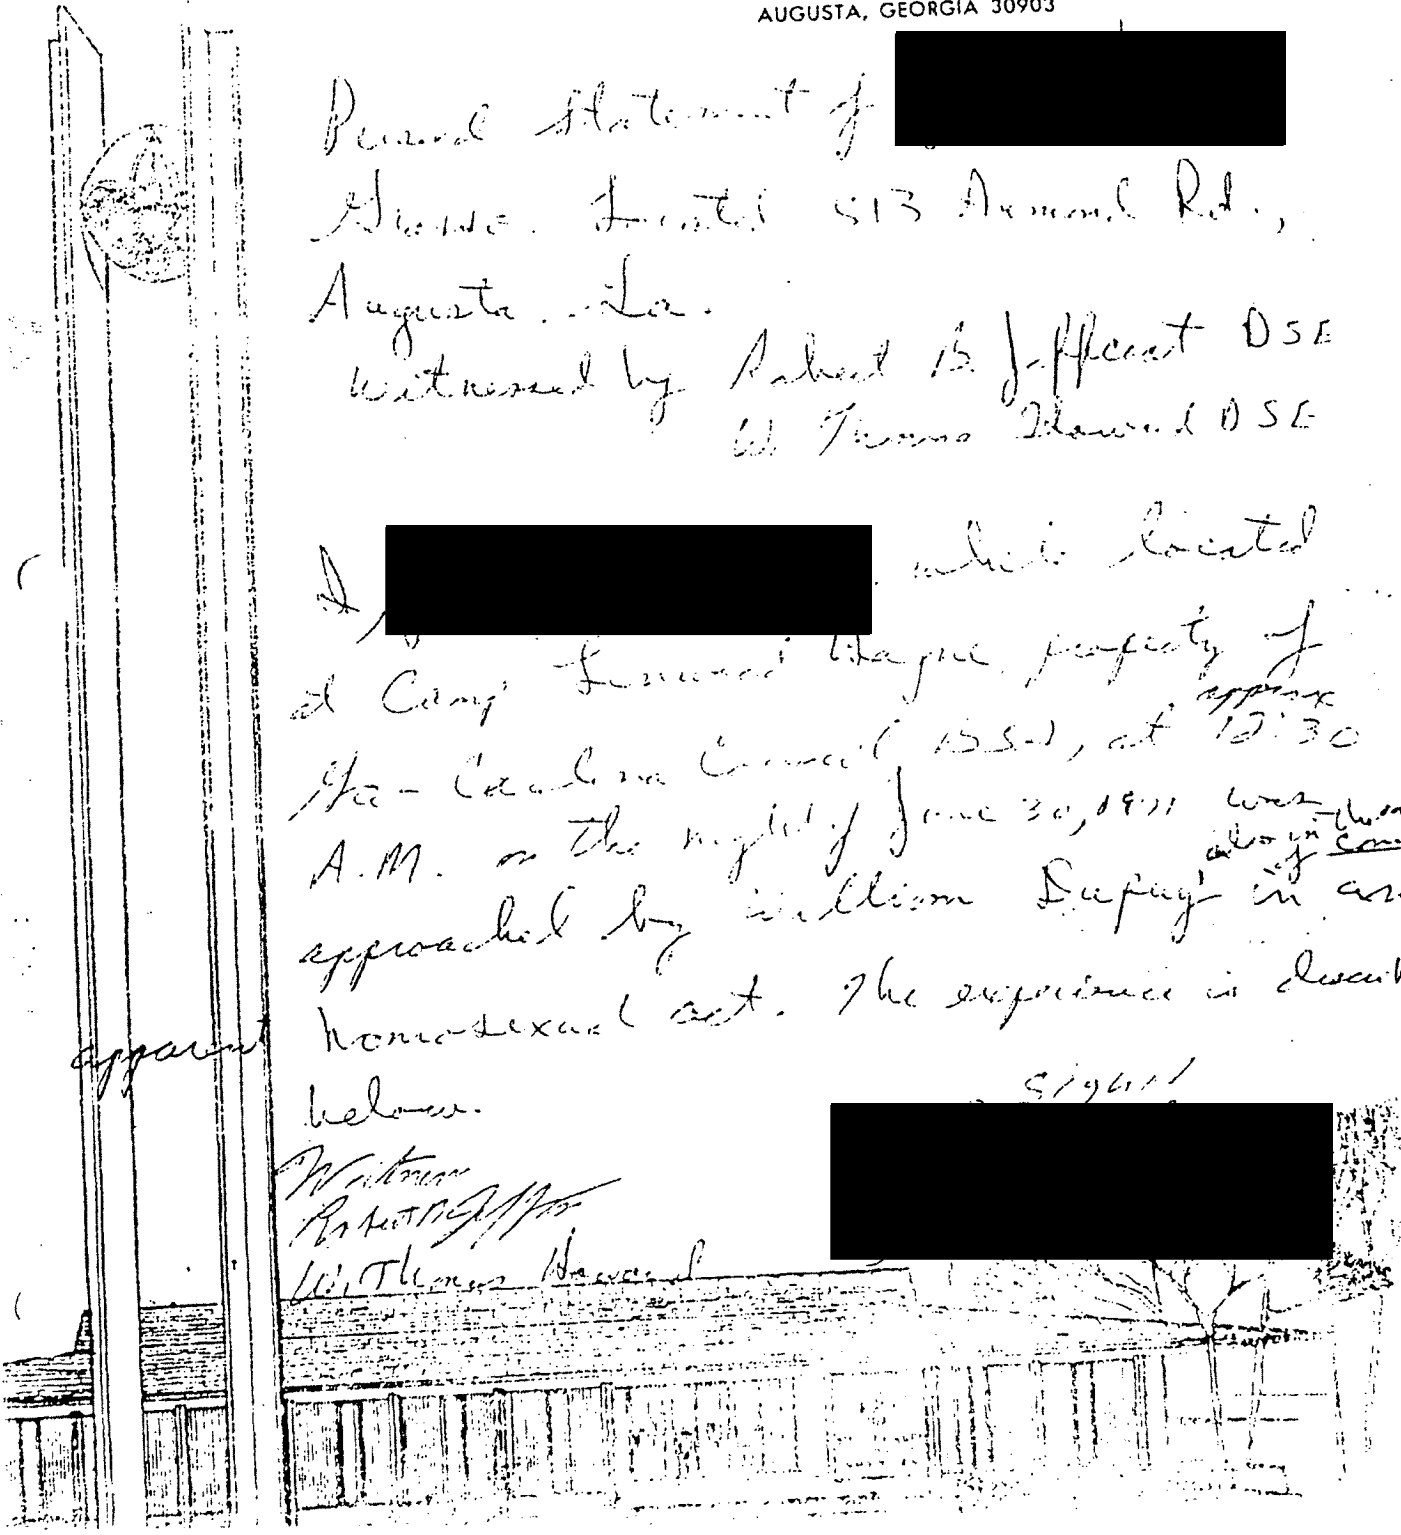 AUGUSTA, GEORGIA 30903
Personal Statement of
513 Armond Rd.,
Augusta, Ga.
Witnessed by Robert B. DSE
W. Thomas Howard DSE
I, while located
at Camp Linwood Hayne, property of
approx
Ga-Carolina Council BSA, at 12:30
A.M. on the night of June 30, 1971 was
approached by William Dupuy in an
apparent homosexual act. The experience is
below.
signed
Witness
W. Thomas Howard